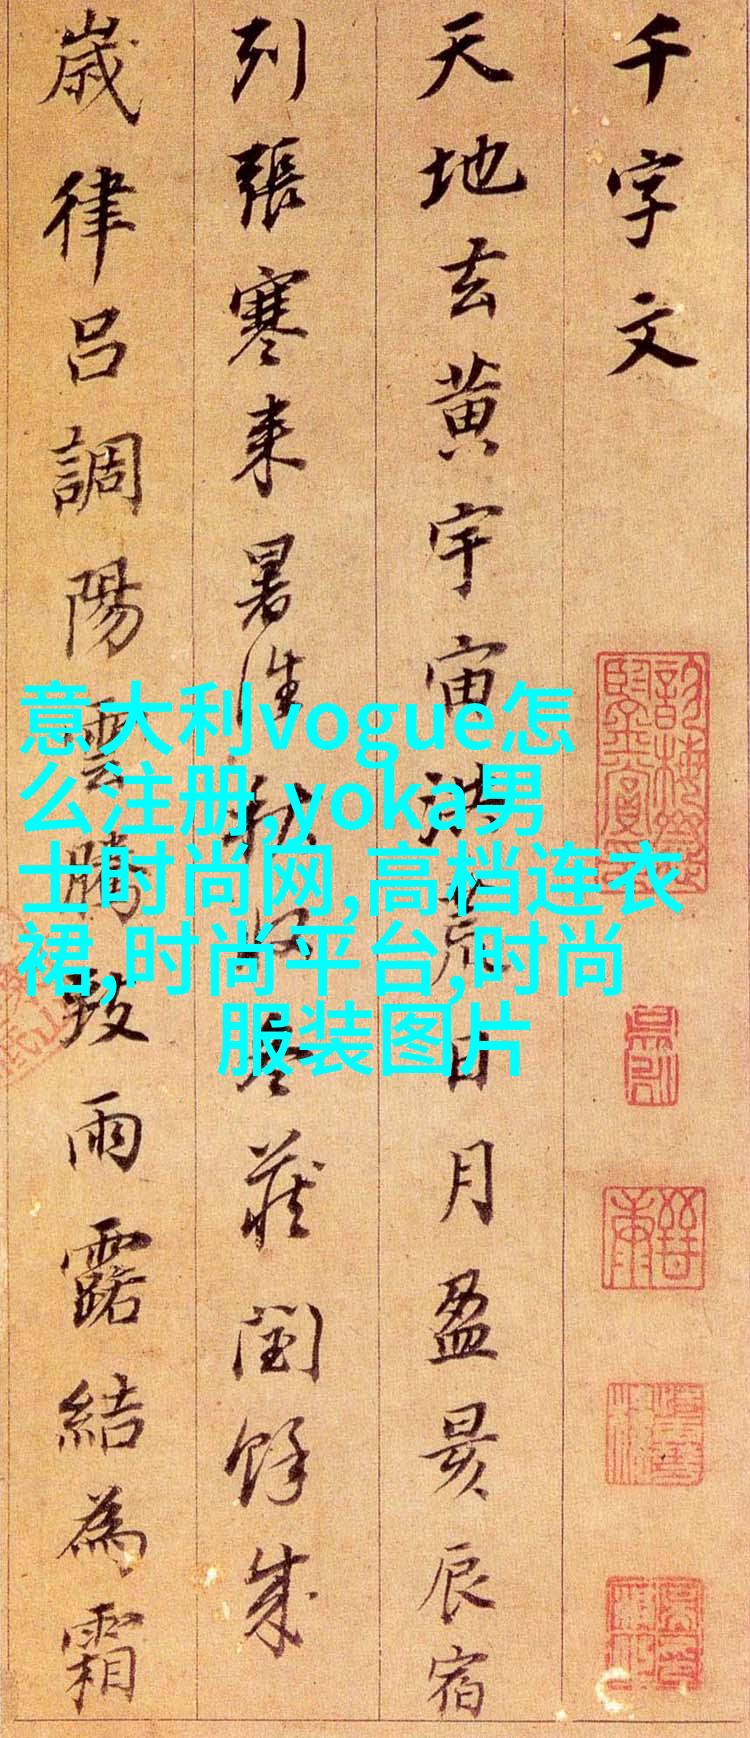 千字文
天地玄黄宇宙洪荒日月盈昃辰宿
列張寒来暑往秋收冬蔵閏餘成
歲律呂調陽雲騰致雨露結為霜
意大利vogue怎
么注册,yoka男
士时尚网,高档连衣
裙,时尚平台,时尚
服装图片